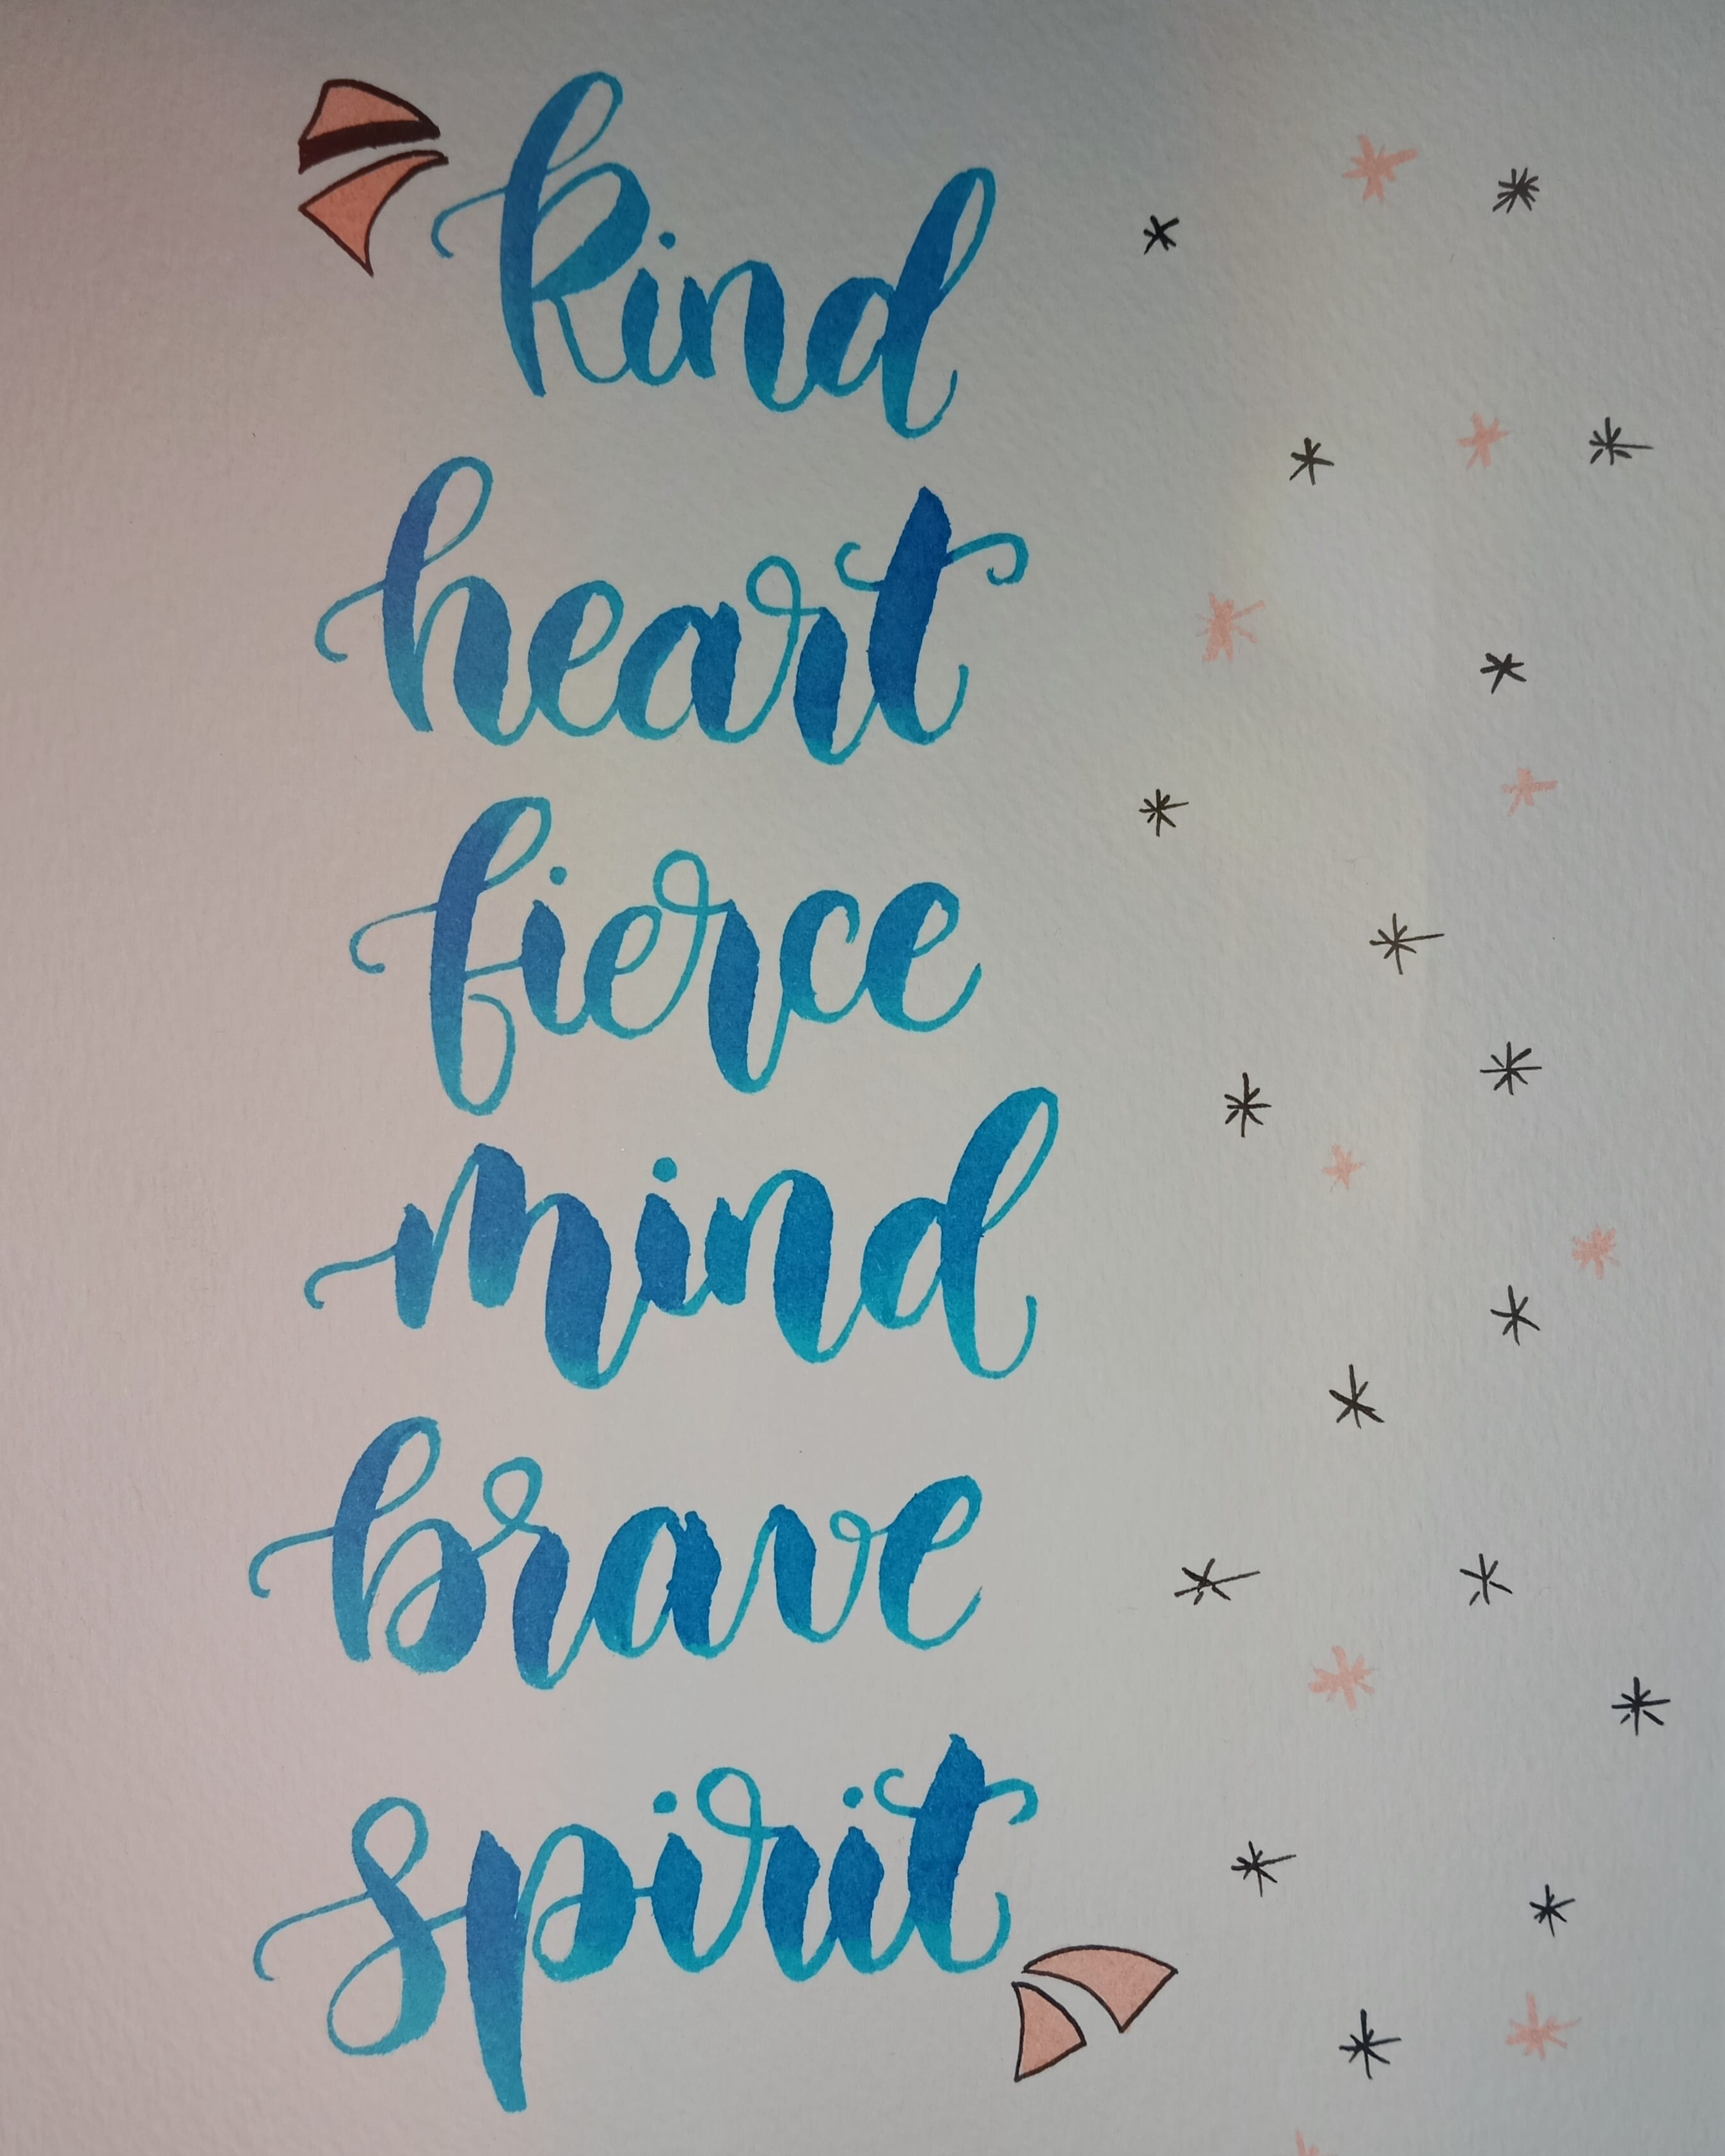 kind
heart
fierce
mind
brave
spirit